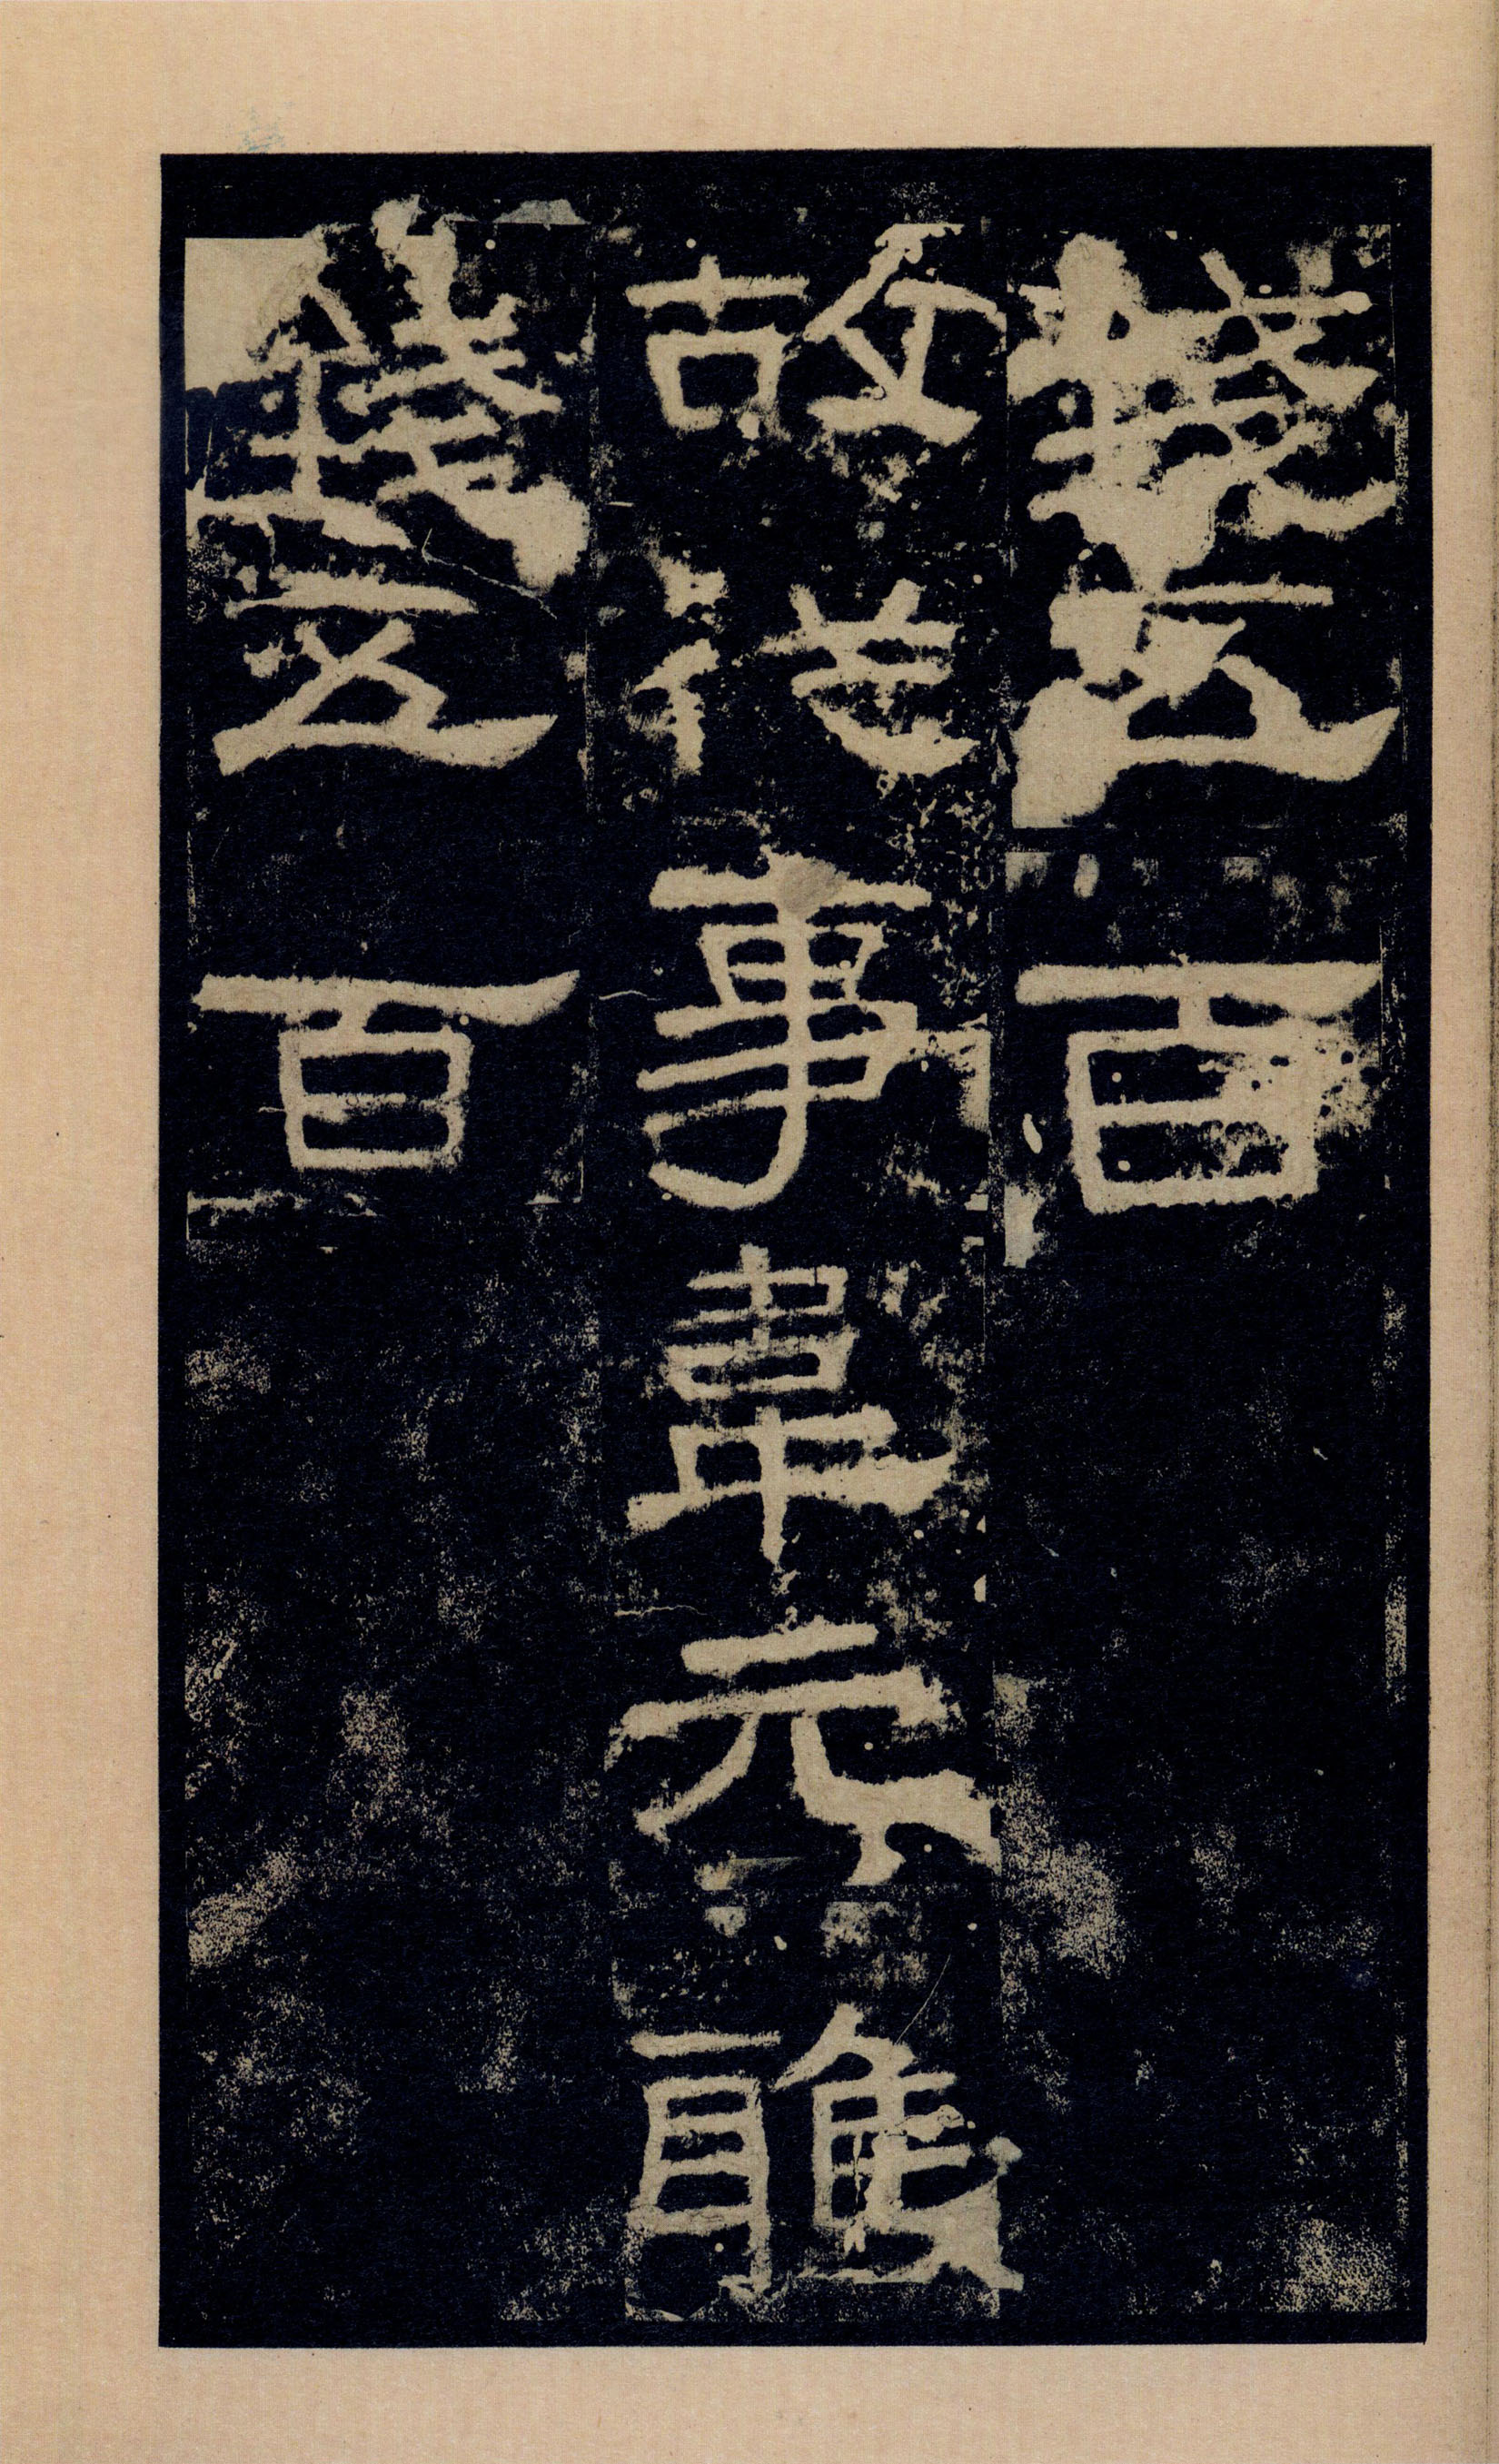 錢五百
故從事韋元雅
錢五百